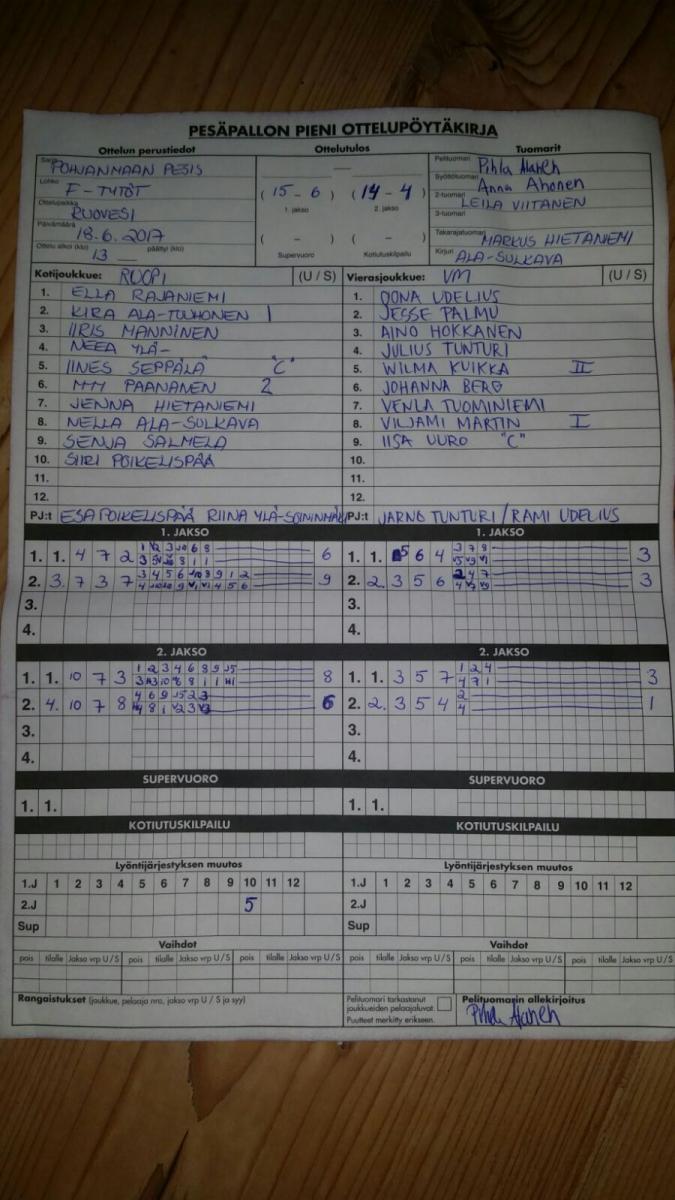 PESÄPALLON PIENI OTTELUPÖYTÄKIRJA
Ottelun perustiedot Ottelutulos Tuomarit
Sarja POHJANMAAN PESIS
Lohko F-TYTÖT
Ottelupaikka RUOVESI
Päivämäärä 18.6.2017
Ottelu alkoi (klo) 13 päättyi (klo)
(15 - 6) (14 - 4)
1. jakso 2. jakso
( - ) ( - )
Supervuoro Kotiutuskilpailu
Pelituomari Pihla
Syöttötuomari Anna Ahonen
2-tuomari LEILA VIITANEN
3-tuomari
Takarajatuomari MARKUS HIETANIEMI
Kirjuri ALA-SULKAVA
Kotijoukkue: RUOPI (U / S)
1. ELLA RAJANIEMI
2. KIRA ALA-TUUHONEN I
3. IIRIS MANNINEN
4. NEEA YLÄ-
5. IINES SEPPÄLÄ "C"
6. PAANANEN 2
7. JENNA HIETANIEMI
8. NELLA ALA-SULKAVA
9. SENJA SALMELA
10. SIIRI POIKELISPÄÄ
11.
12.
PJ:t ESA POIKELISPÄÄ RIINA
Vierasjoukkue: VM (U / S)
1. OONA UDELIUS
2. JESSE PALMU
3. AINO HOKKANEN
4. JULIUS TUNTURI
5. WILMA KUIKKA II
6. JOHANNA BERG
7. VENLA TUOMINIEMI
8. VILJAMI MARTIN I
9. IISA UURO "C"
10.
11.
12.
PJ:t JARNO TUNTURI / RAMI UDELIUS
1. JAKSO 1. JAKSO
1. 1. 4 7 2 6
2. 3. 7 3 7 9
3.
4.
1. 1. 5 6 4 3
2. 2. 3 5 6 3
3.
4.
2. JAKSO 2. JAKSO
1. 1. 10 7 3 8
2. 4. 10 7 8 6
3.
4.
1. 1. 3 5 7 3
2. 2. 3 5 4 1
3.
4.
SUPERVUORO SUPERVUORO
1. 1. 1. 1.
KOTIUTUSKILPAILU KOTIUTUSKILPAILU
Lyöntijärjestyksen muutos Lyöntijärjestyksen muutos
1.J 1 2 3 4 5 6 7 8 9 10 11 12 1.J 1 2 3 4 5 6 7 8 9 10 11 12
2.J 5 2.J
Sup Sup
Vaihdot Vaihdot
pois tilalle Jakso vrp U/S pois tilalle Jakso vrp U/S pois tilalle Jakso vrp U/S pois tilalle Jakso vrp U/S
Rangaistukset (joukkue, pelaaja nro, jakso vrp U / S ja syy)
Pelituomari tarkastanut
joukkueiden pelaajaluvat.
Puutteet merkitty erikseen.
Pelituomarin allekirjoitus
Pihla